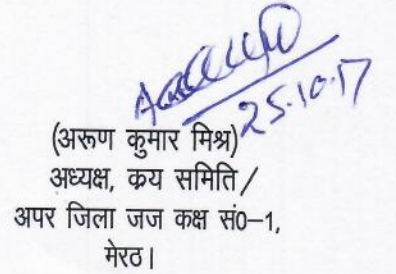 25.10.17
(अरूण कुमार मिश्र)
अध्यक्ष, क्रय समिति/
अपर जिला जज कक्ष सं0-1,
मेरठ।